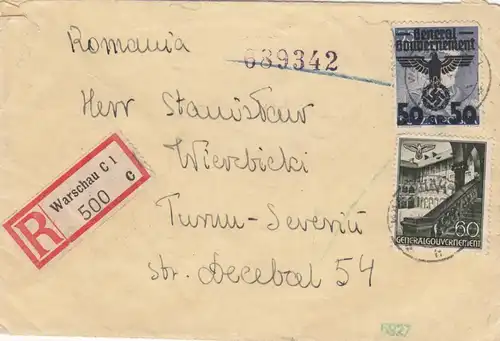 Romania
689342
General
Gouvernement
50 GR. 50
Herr Stanisław
Wierzbicki
Turnu-Severin
str. Decebal 54
R
Warschau C 1
500
c
60
GENERALGOUVERNEMENT
6827